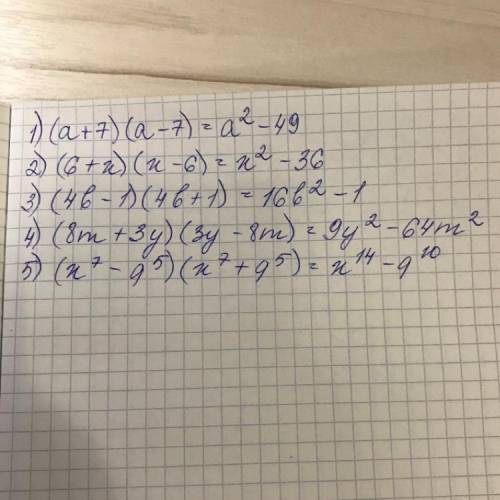 1) (a+7)(a-7) = a² - 49
2) (6+x)(x-6) = x² - 36
3) (4b-1)(4b+1) = 16b² - 1
4) (8m+3y)(3y-8m) = 9y² - 64m²
5) (x⁷ - g⁵)(x⁷ + g⁵) = x¹⁴ - g¹⁰